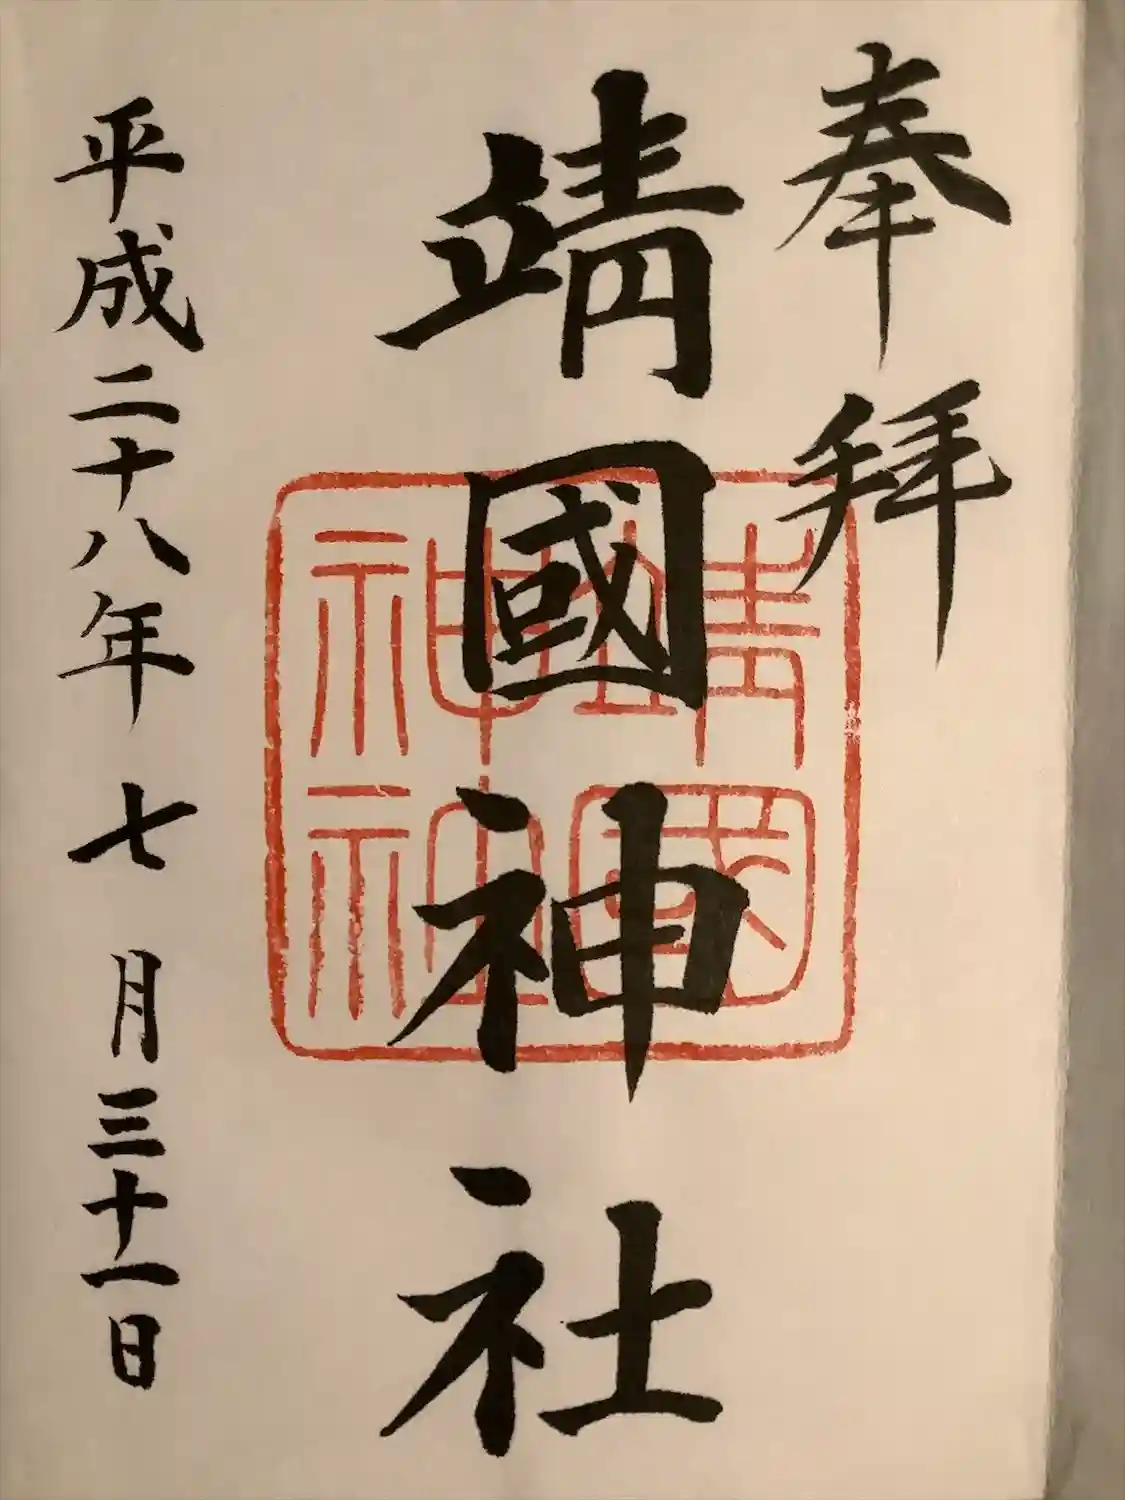 奉拝
靖國神社
靖國神社
平成二十八年七月三十一日